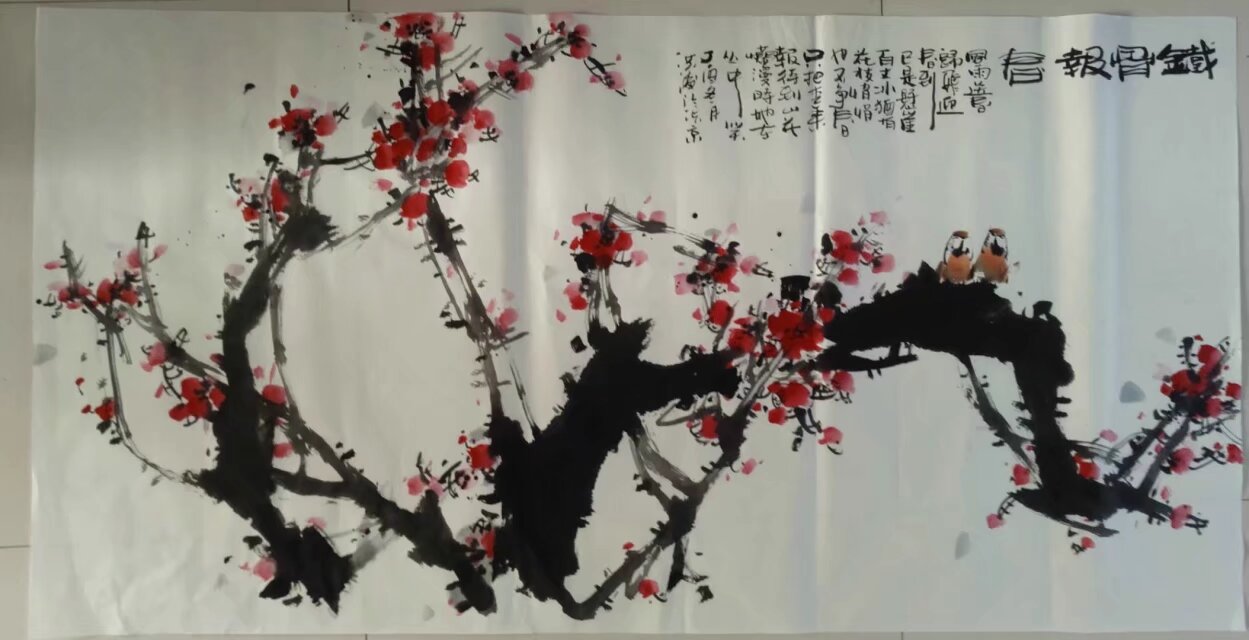 鐵骨報春
風雨送春
歸飛迎
春到
已是懸崖
百丈冰猶有
花枝俏俏
也不爭春
只把春來
報待到山花
爛漫時她在
丛中笑
冬月
京